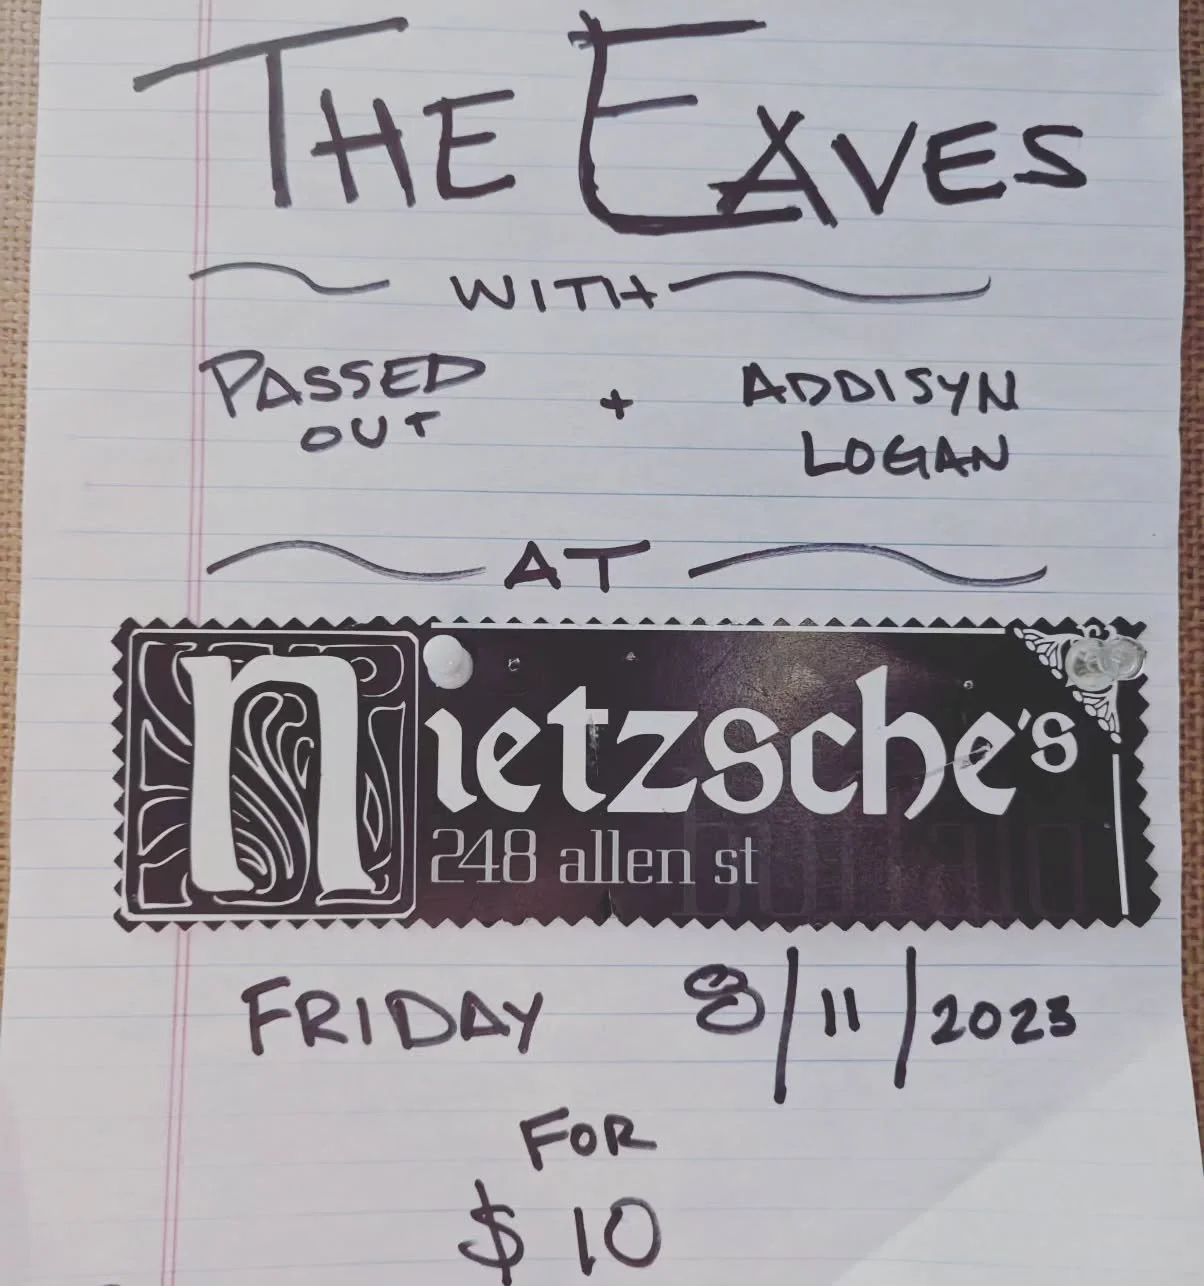 THE EAVES
WITH
PASSED OUT + ADDISYN LOGAN
AT
nietzsche's
248 allen st
buffalo
FRIDAY 8/11/2023
FOR
$10